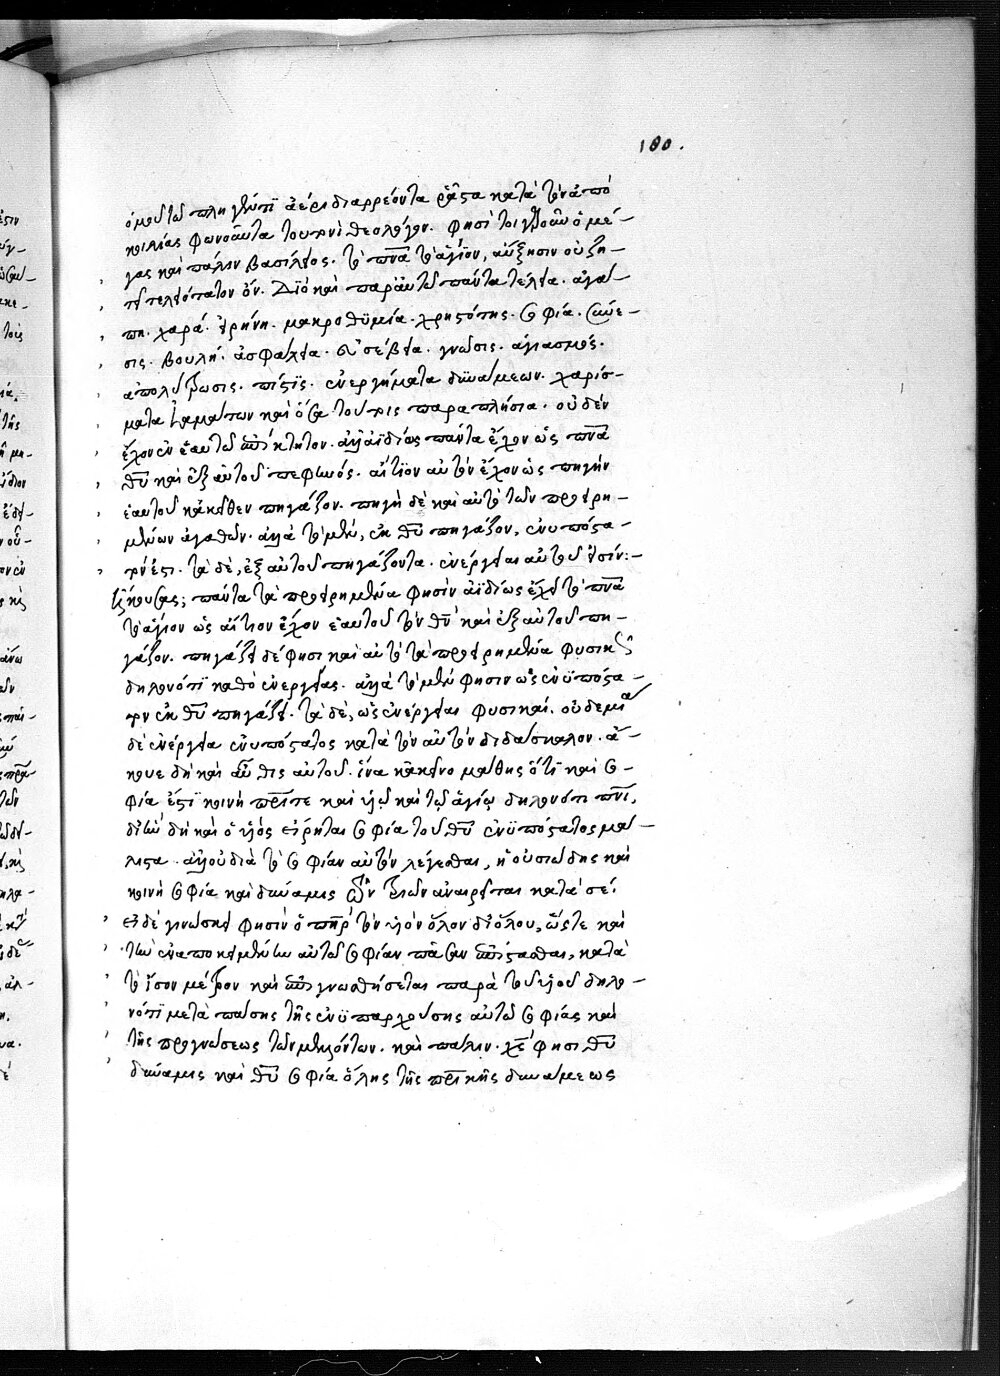 180.
ὁμοῦ τῶ πληγέντι ἀέρι διαρρέοντα ῥᾶστα κατὰ τὸν ἀπὸ
κοιλίας φωνοῦντα τουτονὶ θεολόγον. φησὶ τοιγαροῦν ὁ μέ-
γας καὶ πάλιν βασίλειος. τὸ πνα τὸ ἅγιον, αὔξησιν οὐ ζη-
τεῖ τελειότατον ὄν. Διὸ καὶ παρ' αὐτῶ πάντα τέλεια. ἀγά-
πη. χαρά. εἰρήνη. μακροθυμία. χρηστότης. σοφία. σύνε-
σις. βουλή. ἀσφάλεια. εὐσέβεια. γνῶσις. ἁγιασμός.
ἀπολύτρωσις. πίστϊς. ἐνεργήματα δϋνάμεων. χαρίσ-
ματα ἰαμάτων καὶ ὅσα τούτοις παραπλήσια. οὐδὲν
ἔχον ἐν ἑαυτῶ ἐπίκτητον. ἀλλ' ἀϊδίως πάντα ἔχον ὡς πνα
θυ καὶ ἐξ αὐτοῦ πεφηνός. αἴτϊον αὐτὸν ἔχον ὡς πηγὴν
ἑαυτοῦ κἀκεῖθεν πηγάζον. πηγὴ δὲ καὶ αὐτὸ τῶν προειρη-
μένων ἀγαθῶν. ἀλλὰ τὸ μὲν, ἐκ θυ πηγάζον, ἐνυπόστα-
τόν ἐστι. τὰ δὲ, ἐξ αὐτοῦ πηγάζοντα. ἐνέργειαι αὐτοῦ εἰσίν:-
ἤκουσας; πάντα τὰ προειρημένα φησὶν ἀϊδίως ἔχει τὸ πνα
τὸ ἅγιον ὡς αἴτιον ἔχον ἑαυτοῦ τὸν θν καὶ ἐξ αὐτοῦ πη-
γάζον. πηγάζει δέ φησι καὶ αὐτὸ τὰ προειρημένα φυσικῶς
δηλονότϊ καθὸ ἐνεργείας. ἀλλὰ τὸ μὲν φησιν ὡς ἐνϋπόστα-
τον ἐκ θυ πηγάζει. τὰ δὲ, ὡς ἐνέργειαι φυσικαί. οὐδεμία
δὲ ἐνέργεια ἐνυπόστατος κατὰ τὸν αὐτὸν διδάσκαλον. ἄ-
κουε δὴ καὶ αὖθις αὐτοῦ. ἵνα κἀκεῖνο μάθης ὅτϊ καὶ σο-
φία ἐστὶ κοινὴ πρί τε καὶ υἱῷ καὶ τῷ ἁγίῳ δηλονότι πνι,
δι' ἣν δὴ καὶ ὁ υἱὸς εἴρηται σοφία τοῦ θυ ἐνϋπόστατος μά-
λιστα. ἀλλ' οὐ διὰ τὸ σοφίαν αὐτὸν λέγεσθαι, ἡ οὐσιώδης καὶ
κοινὴ σοφία καὶ δύναμις τῶν τριῶν ἀναιρεῖται κατὰ σέ.
εἰ δὲ γινώσκει φησὶν ὁ πηρ τὸν υἱὸν ὅλον δι' ὅλου, ὥστε καὶ
τὴν ἐναποκειμένην αὐτῶ σοφίαν πᾶσαν ἐπίστασθαι, κατὰ
τὸ ἴσον μέτρον καὶ ἐπιγνωσθήσεται παρὰ τοῦ υἱοῦ δηλο-
νότϊ μετὰ πάσης τῆς ἐνϋπαρχούσης αὐτῶ σοφίας καὶ
τῆς προγνώσεως τῶν μελλόντων. καὶ πάλιν. χς φησι θυ
δύναμις καὶ θυ σοφία ὅλης τῆς πρικῆς δυνάμεως